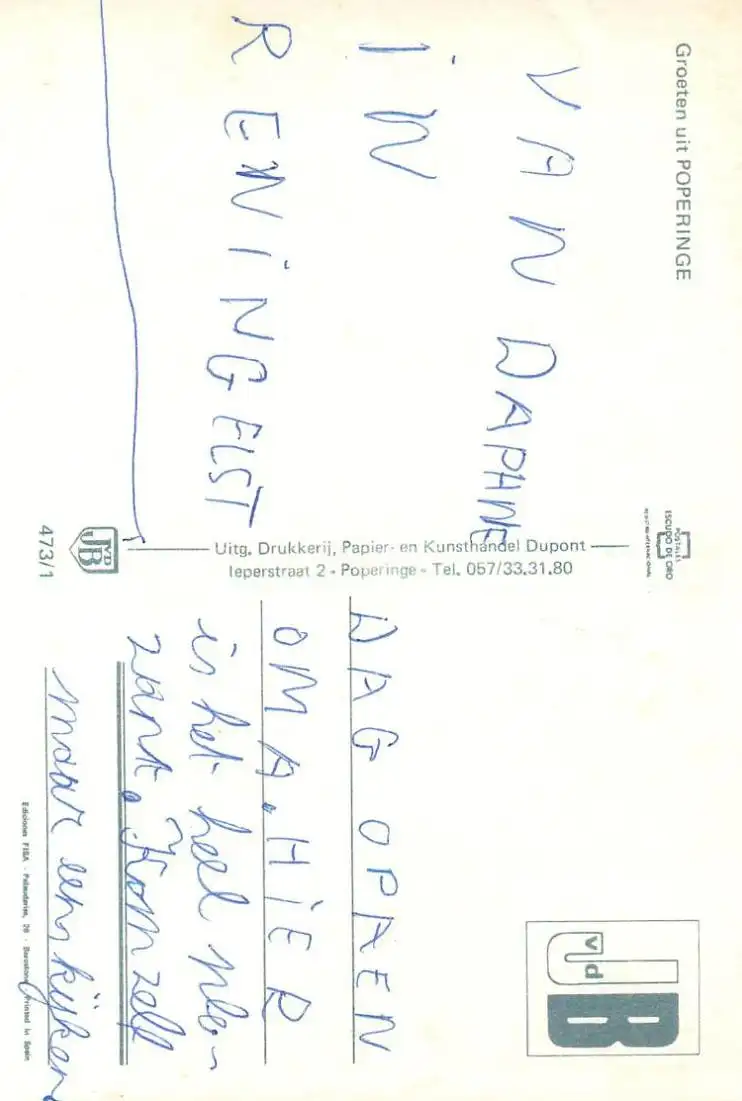 Groeten uit POPERINGE
VAN DAPHNE
iN
RENiNGELST
473/1
VD
JB
Uitg. Drukkerij, Papier- en Kunsthandel Dupont
Ieperstraat 2 - Poperinge - Tel. 057/33.31.80
POSTALES
ESCUDO DE ORO
vd
JB
DAG OPA EN
OMA. HiER
is het heel ple-
zant. Kom zelf
maar eens kijken
Ediciones FISA - Palaudarias, 26 - Barcelona Printed in Spain